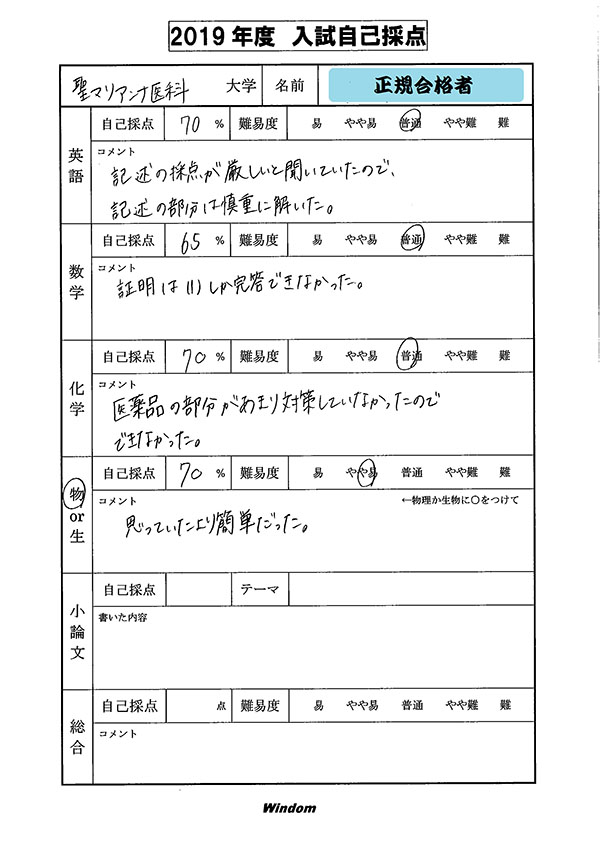 2019年度 入試自己採点
聖マリアンナ医科 大学 名前 正規合格者
英語
自己採点 70 % 難易度 易 やや易 普通 やや難 難
コメント
記述の採点が厳しいと聞いていたので、
記述の部分は慎重に解いた。
数学
自己採点 65 % 難易度 易 やや易 普通 やや難 難
コメント
証明は(1)しか完答できなかった。
化学
自己採点 70 % 難易度 易 やや易 普通 やや難 難
コメント
医薬品の部分があまり対策していなかったので
できなかった。
物or生
自己採点 70 % 難易度 易 やや易 普通 やや難 難
コメント ←物理か生物に○をつけて
思っていたより簡単だった。
小論文
自己採点 テーマ
書いた内容
総合
自己採点 点 難易度 易 やや易 普通 やや難 難
コメント
Windom